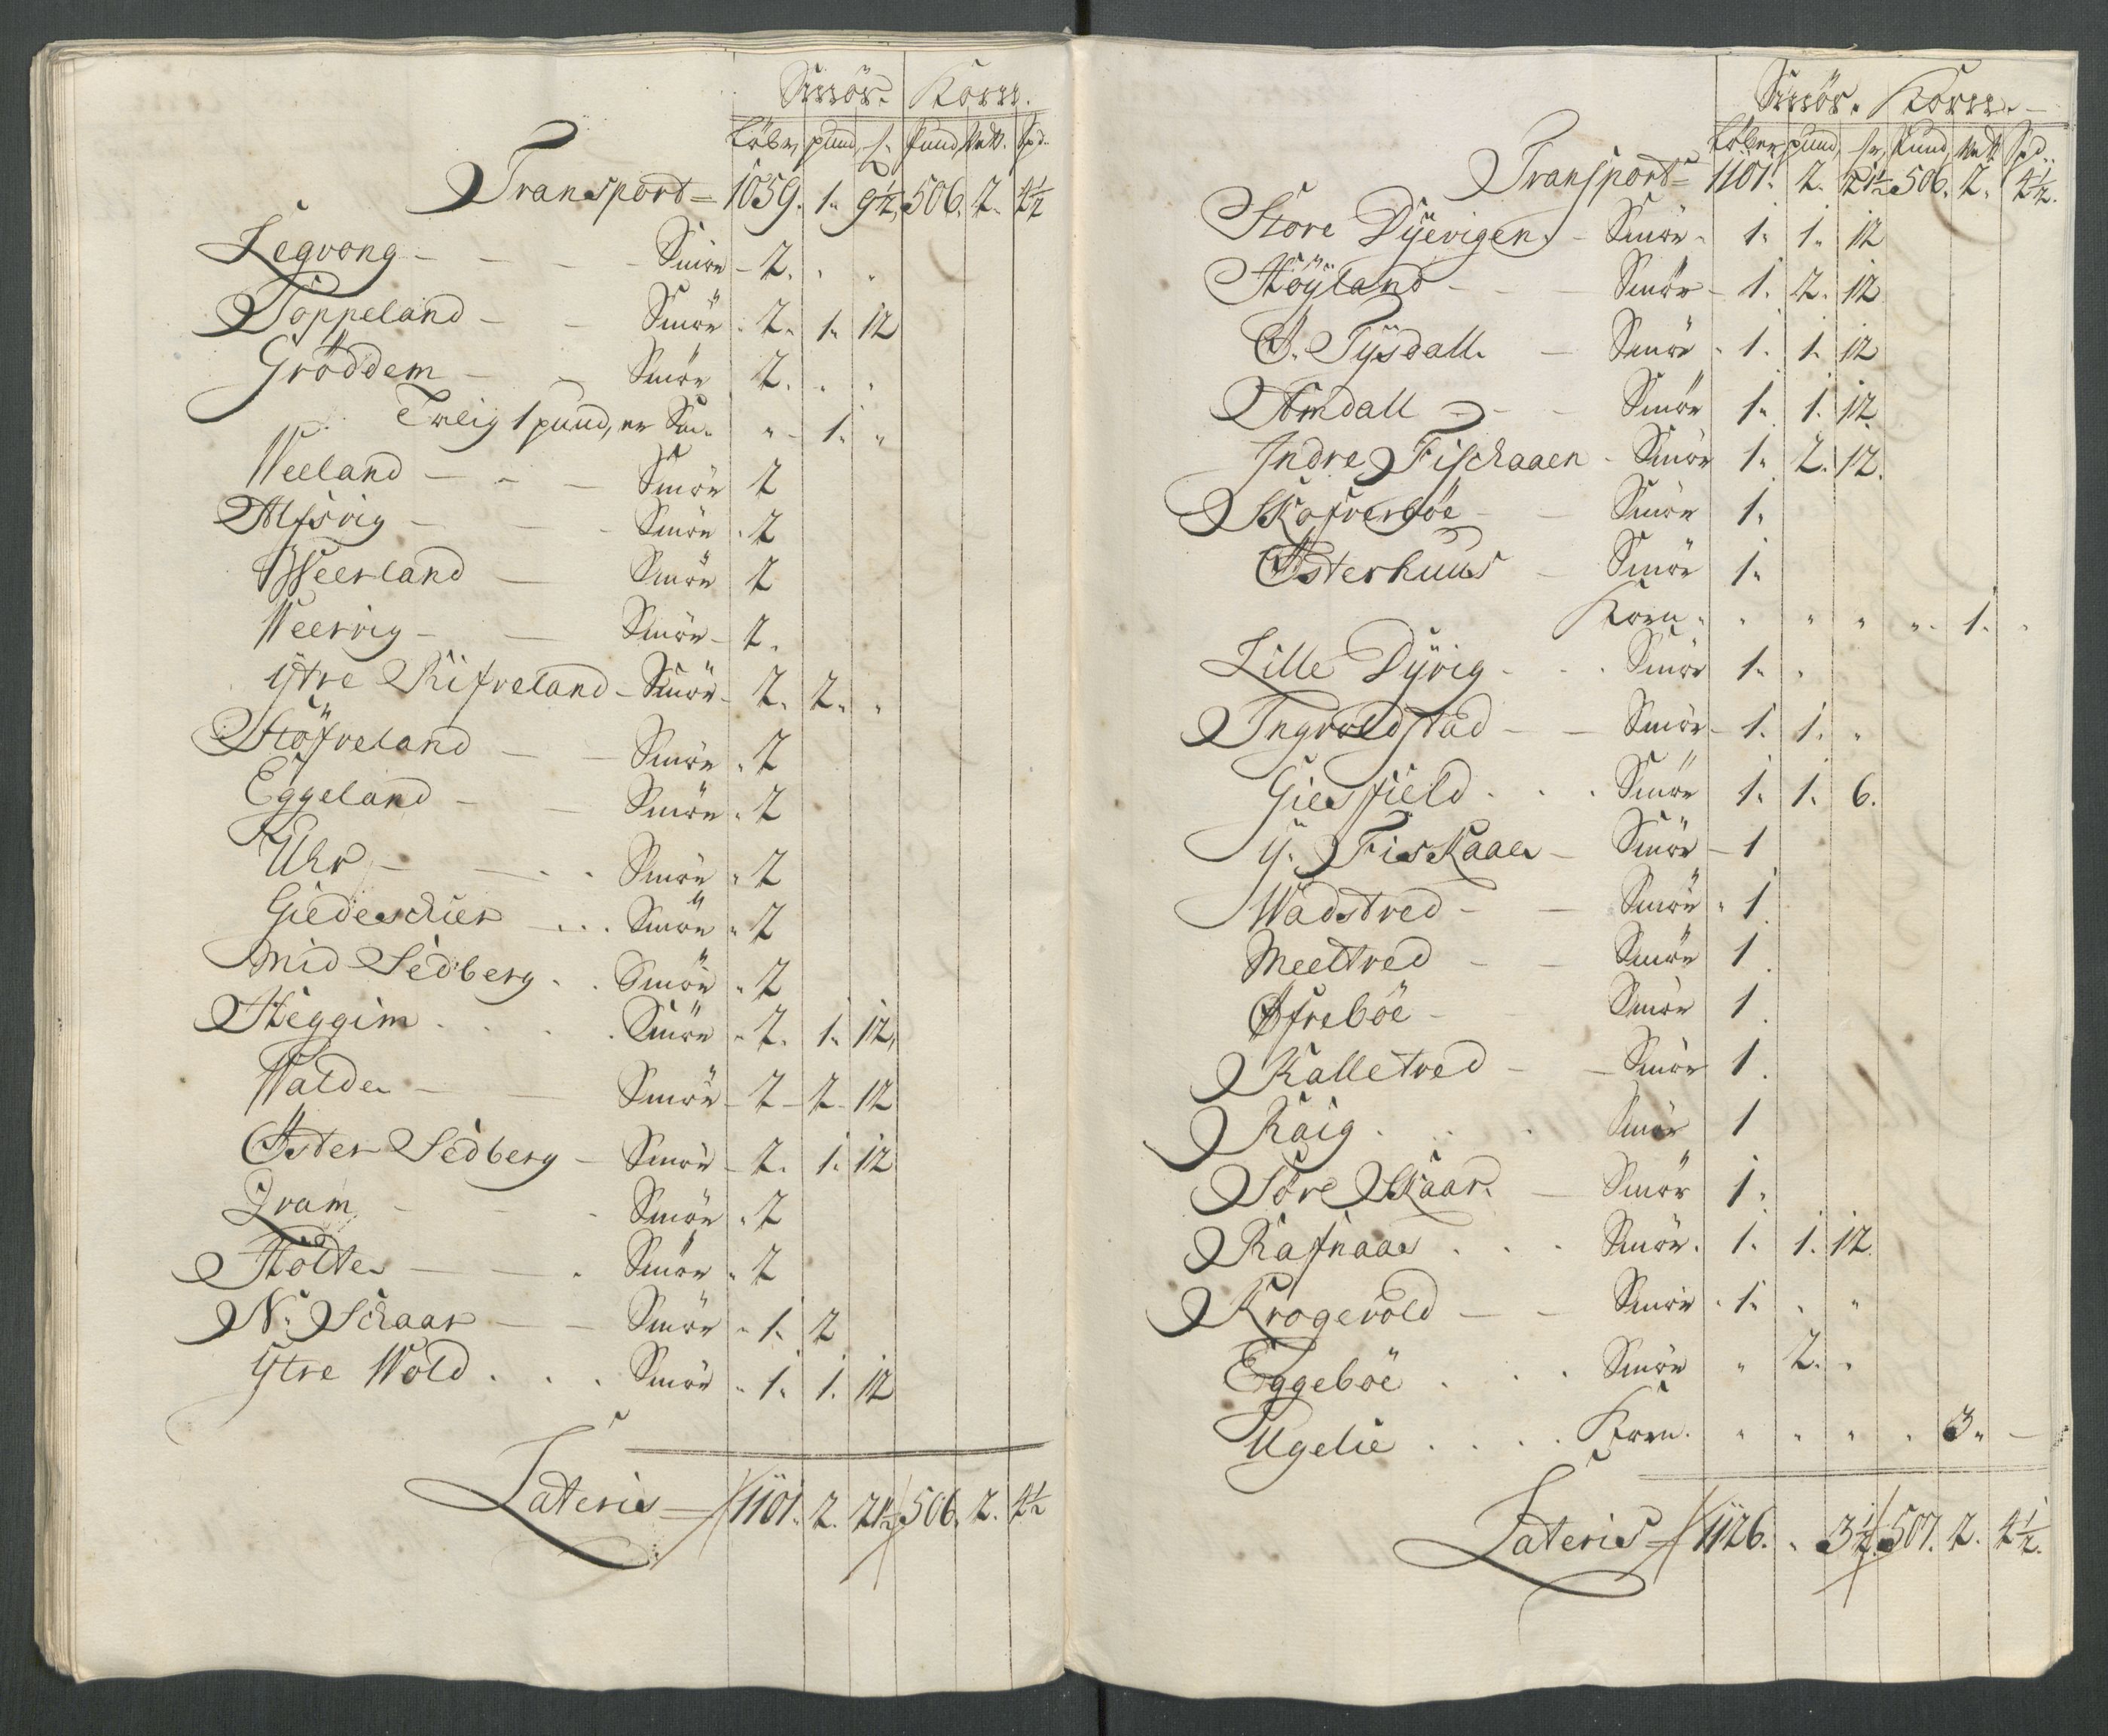 Smör. Korn.
Löber, pund, Pund, Vett. Spd.
Transport = 1059. 1. 9½, 506. 2. 4½
Legvong - - - - Smör - 2. . "
Toppeland - - Smör - 2. 1. 12
Gröddem - - Smör 2. . .
1 pund, er Sm. " - 1. "
Veeland - - - Smör 2
Alfsvig - - - Smör . 2
Weerland - Smör 2
Veervig - - Smör - 2.
Ytre Rifveland - Smör - 2. 2. "
Höfveland - - Smör . 2
Eggeland - - Smör . 2
Uhr - - . . Smör . 2
Giedeschier - . . . Smör . 2
Mid Sedberg . . Smör . 2
Heggim . . . . Smör - 2. 1. 12,
Walde - - Smör - 2 - 2 - 12
Öster Sedberg - Smör - 2. 1. 12
Qvam - - - Smör . 2
Holte - - . Smör . 2
N. Schaar - - Smör - 1. 2
Ytre Wold . . . Smör - 1. 1. 12
Lateris = 1101. 2. 21½ 506. 2. 4½
Smör. Korn. -
Löber, pund, Pund, Vett Spd.
Transport = 1101. 2. 21½ 506. 2. 4½.
Store Dyevigen. - Smör - 1. 1. 12
Höyland - - - Smör - 1. 2. 12
Ö. Tysdall. - Smör - 1. 1. 12
Amdall - - - Smör 1. 1. 12
Indre Fischaaen - Smör 1. 2. 12.
Skofverböe - - Smör 1.
Österhuus - Smör 1.
Korn . " " " " . 1. .
Lille Dyvig - - . Smör 1. .
Ingvoldstad - - Smör - 1. 1. "
Giesfield . . . Smör 1. 1. 6.
Y. Fiskaaen - Smör - 1
Wadstved - - Smör . 1.
Meeltved - - Smör 1.
Öfreböe - - Smör 1.
Kalletved - - Smör 1.
Raig . . . Smör 1
Söre Skaar. - Smör 1.
Rafnaas . . . Smör . 1. 1. 12.
Krogevold - - Smör . 1. . "
Eggeböe . . . Smör " 2. "
Ugelie . . . . Korn. " " " . 3. -
Lateris = 1126. . 3½ 507. 2. 4½.